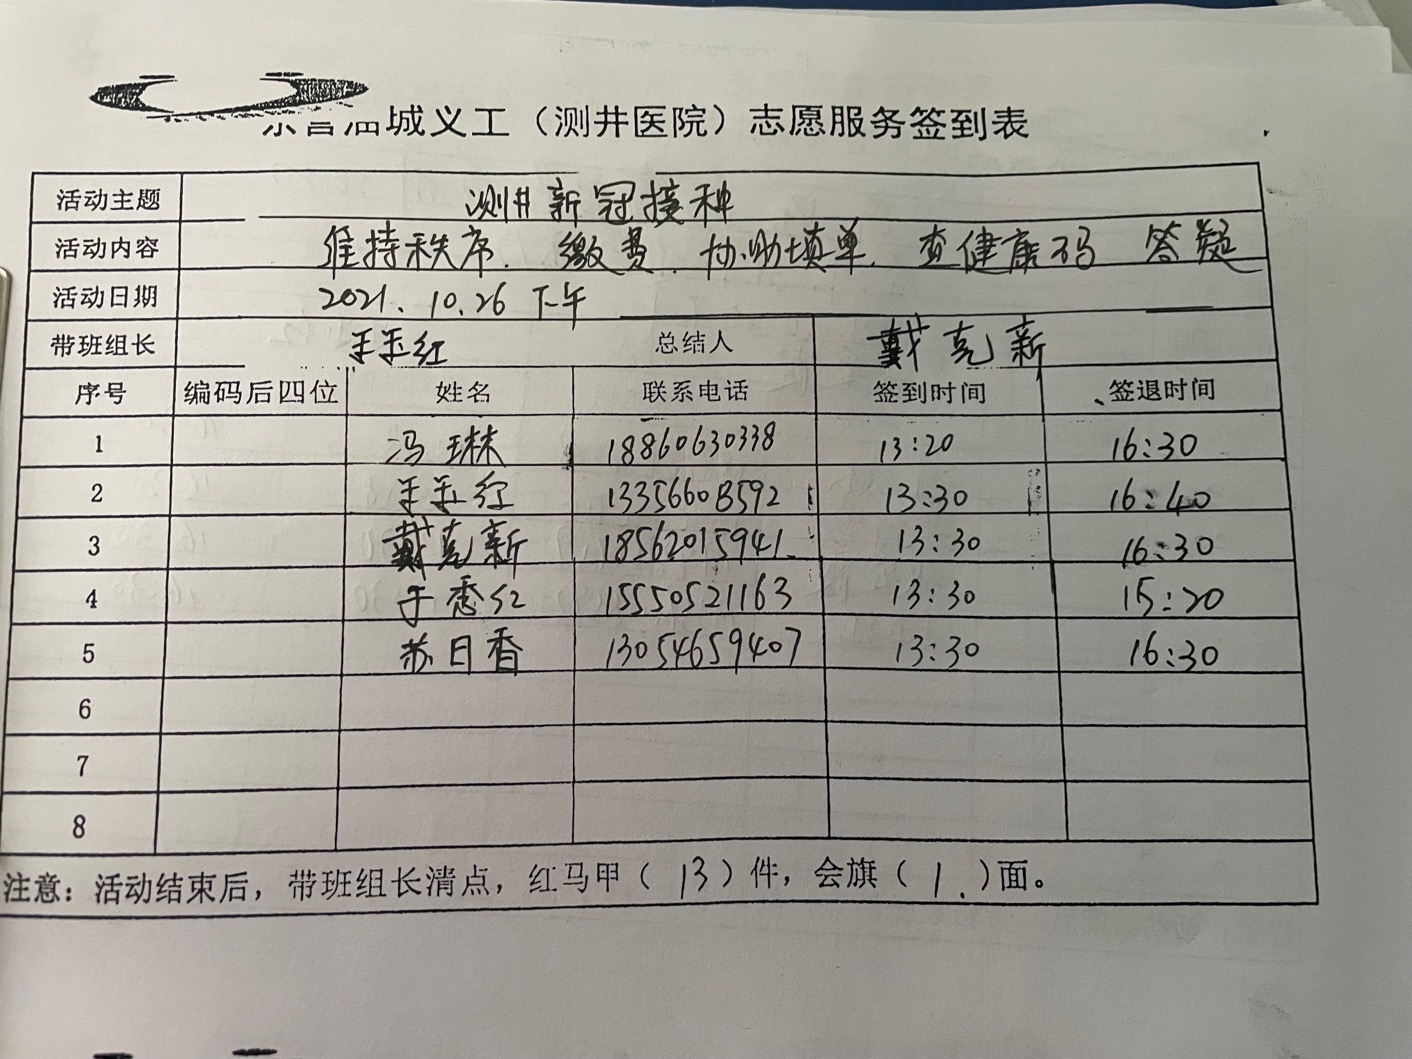 东营油城义工（测井医院）志愿服务签到表
活动主题 测井新冠接种
活动内容 维持秩序、缴费、协助填单、查健康码 答疑
活动日期 2021.10.26 下午
带班组长 王玉红 总结人 戴克新
序号 编码后四位 姓名 联系电话 签到时间 签退时间
1 冯琳 18860630338 13:20 16:30
2 王玉红 13356608592 13:30 16:40
3 戴克新 18562015941 13:30 16:30
4 于秀红 15550521163 13:30 15:20
5 苏日香 13054659407 13:30 16:30
6
7
8
注意：活动结束后，带班组长清点，红马甲（13）件，会旗（1.）面。